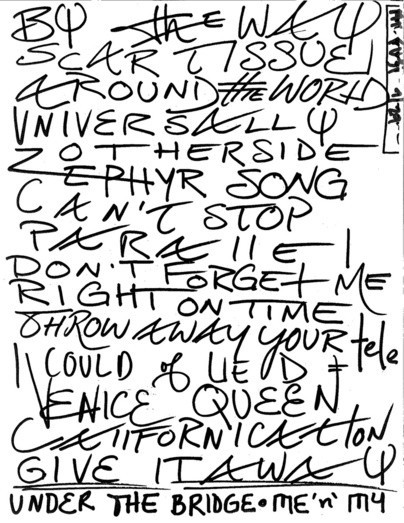 BY the WAY
SCAR TISSUE
AROUND the WORLD
UNIVERSALLY
OTHERSIDE
ZEPHYR SONG
CAN'T STOP
PARAllEl
DON'T FORGEt ME
RIGHT ON TIME
THROW AWAY YOUR tele
I COULD of LIED
VENICE QUEEN
CAlIFORNICAtION
GIVE IT AWAY
UNDER THE BRIDGE • ME 'n' MY